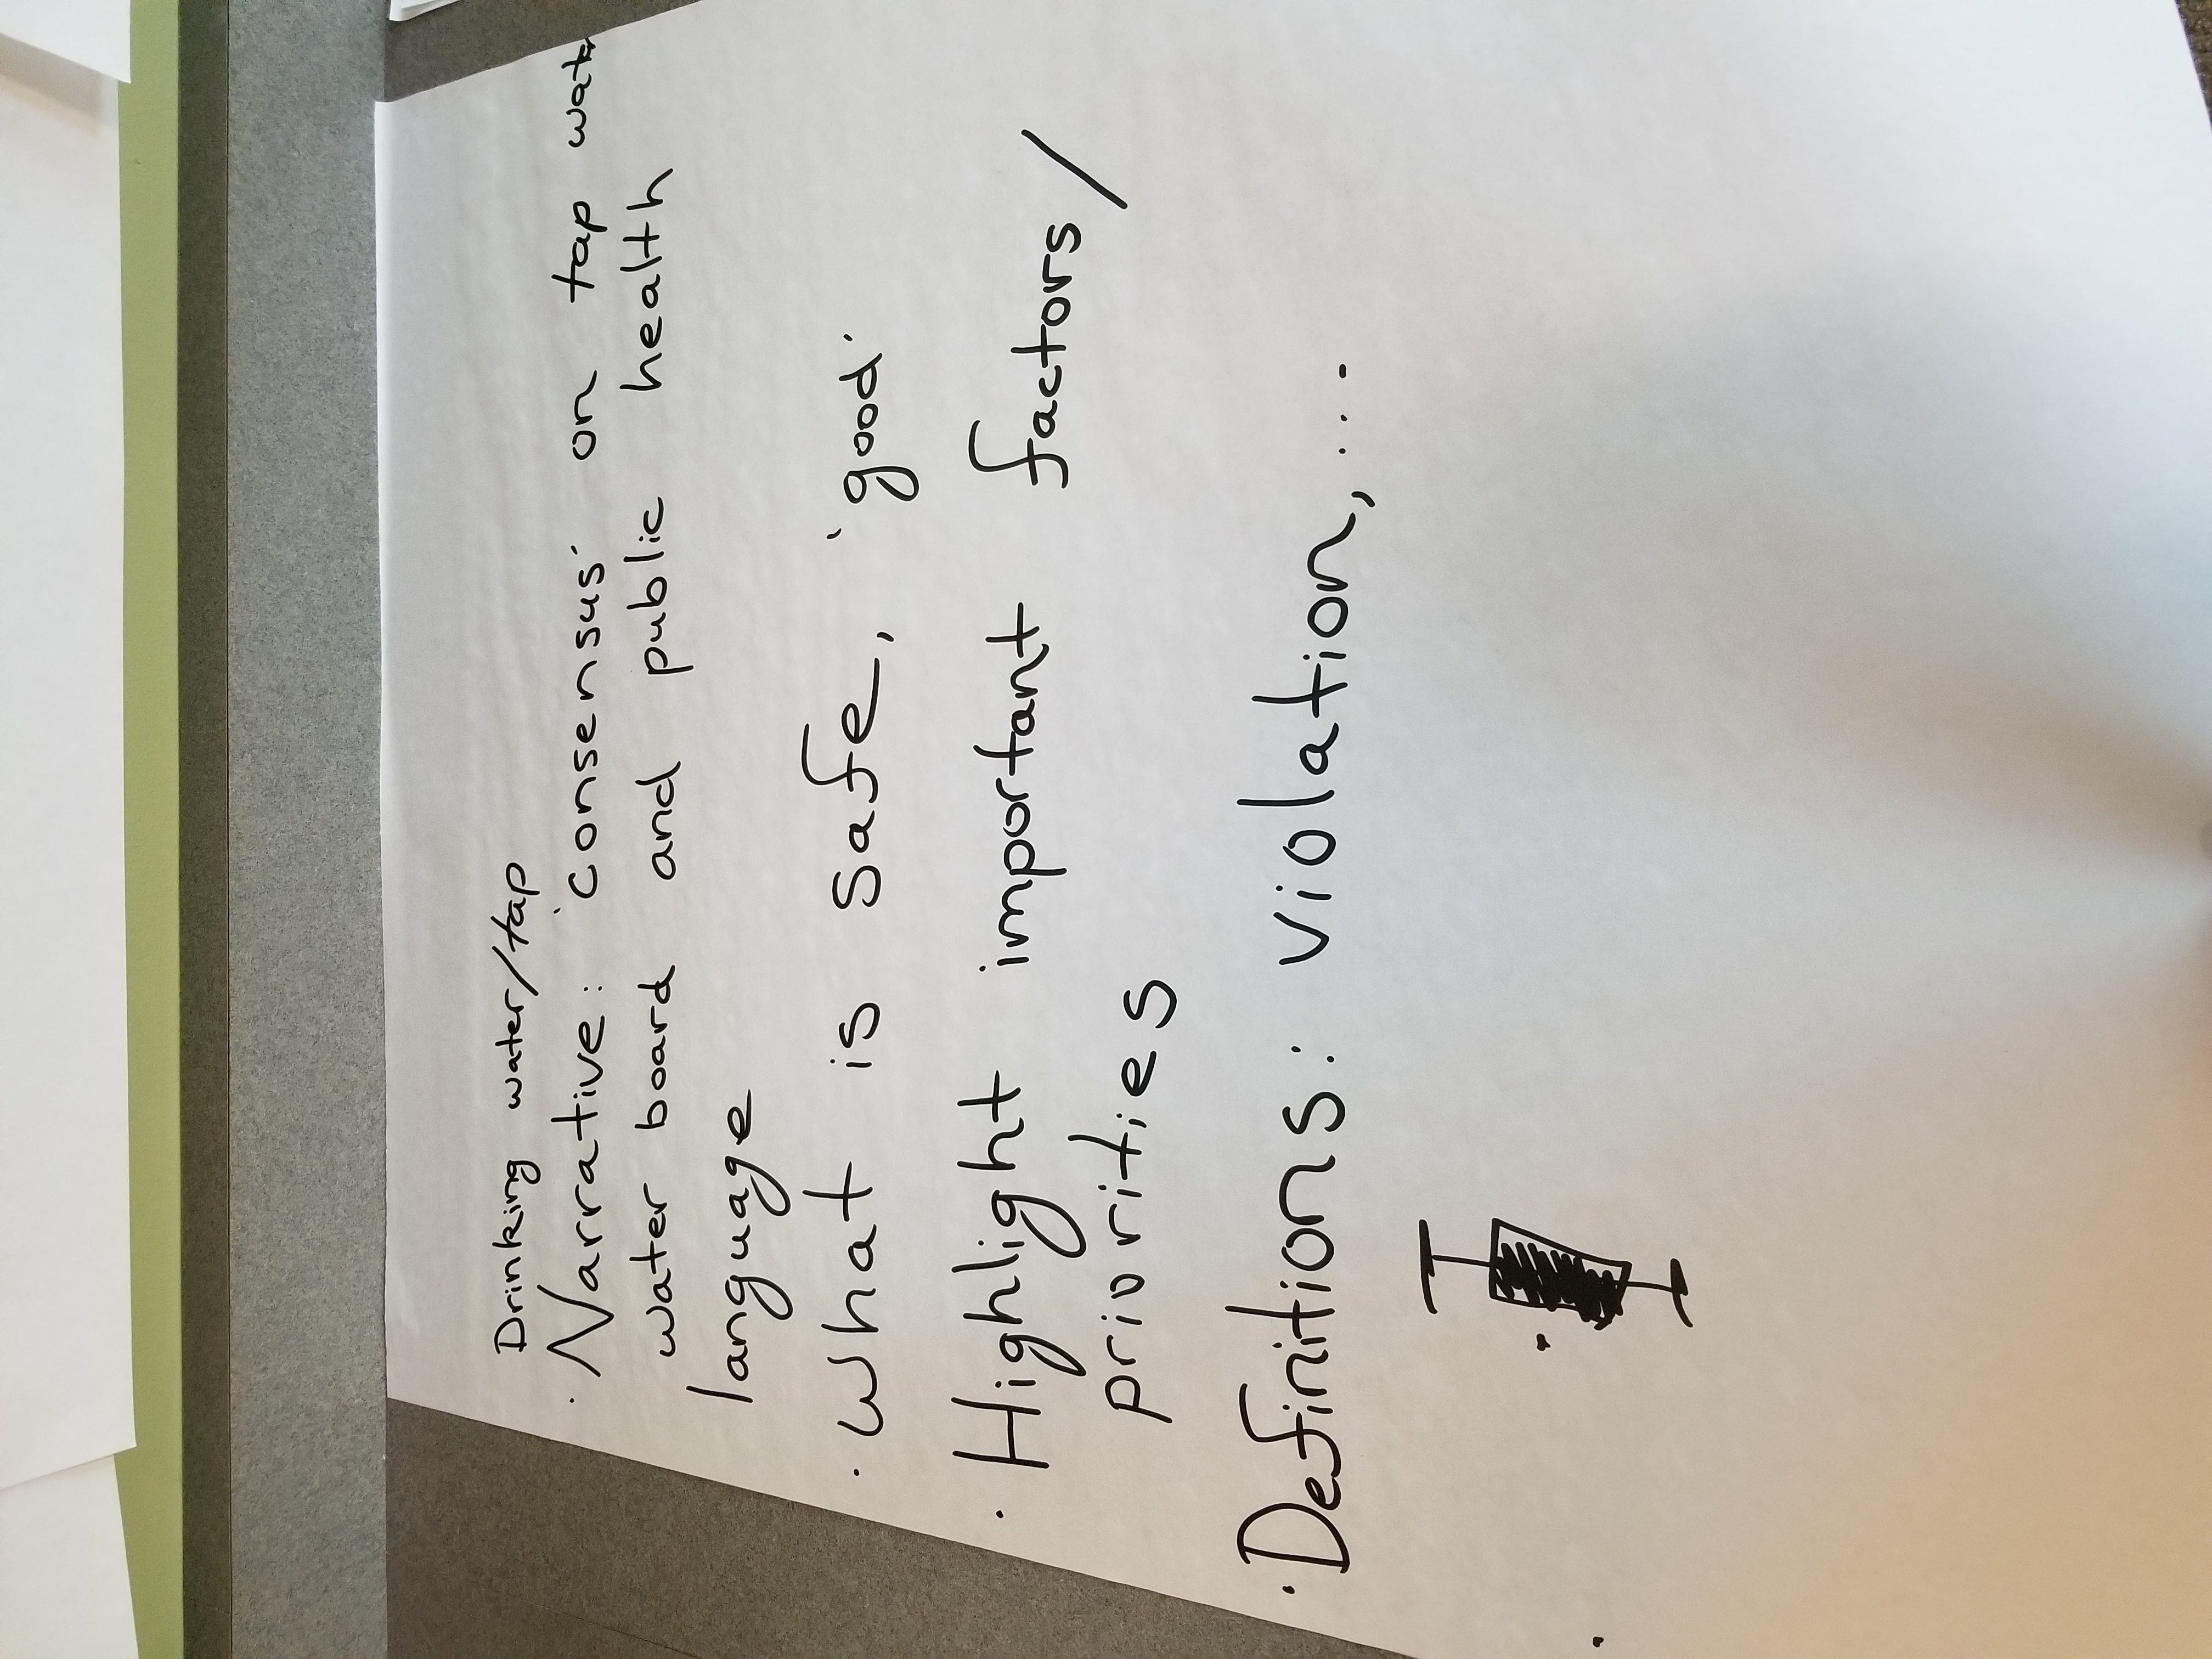 Drinking water/tap
· Narrative: 'consensus' on tap water
water board and public health
language
· What is safe, 'good'
· Highlight important factors/
priorities
· Definitions: violation, ...